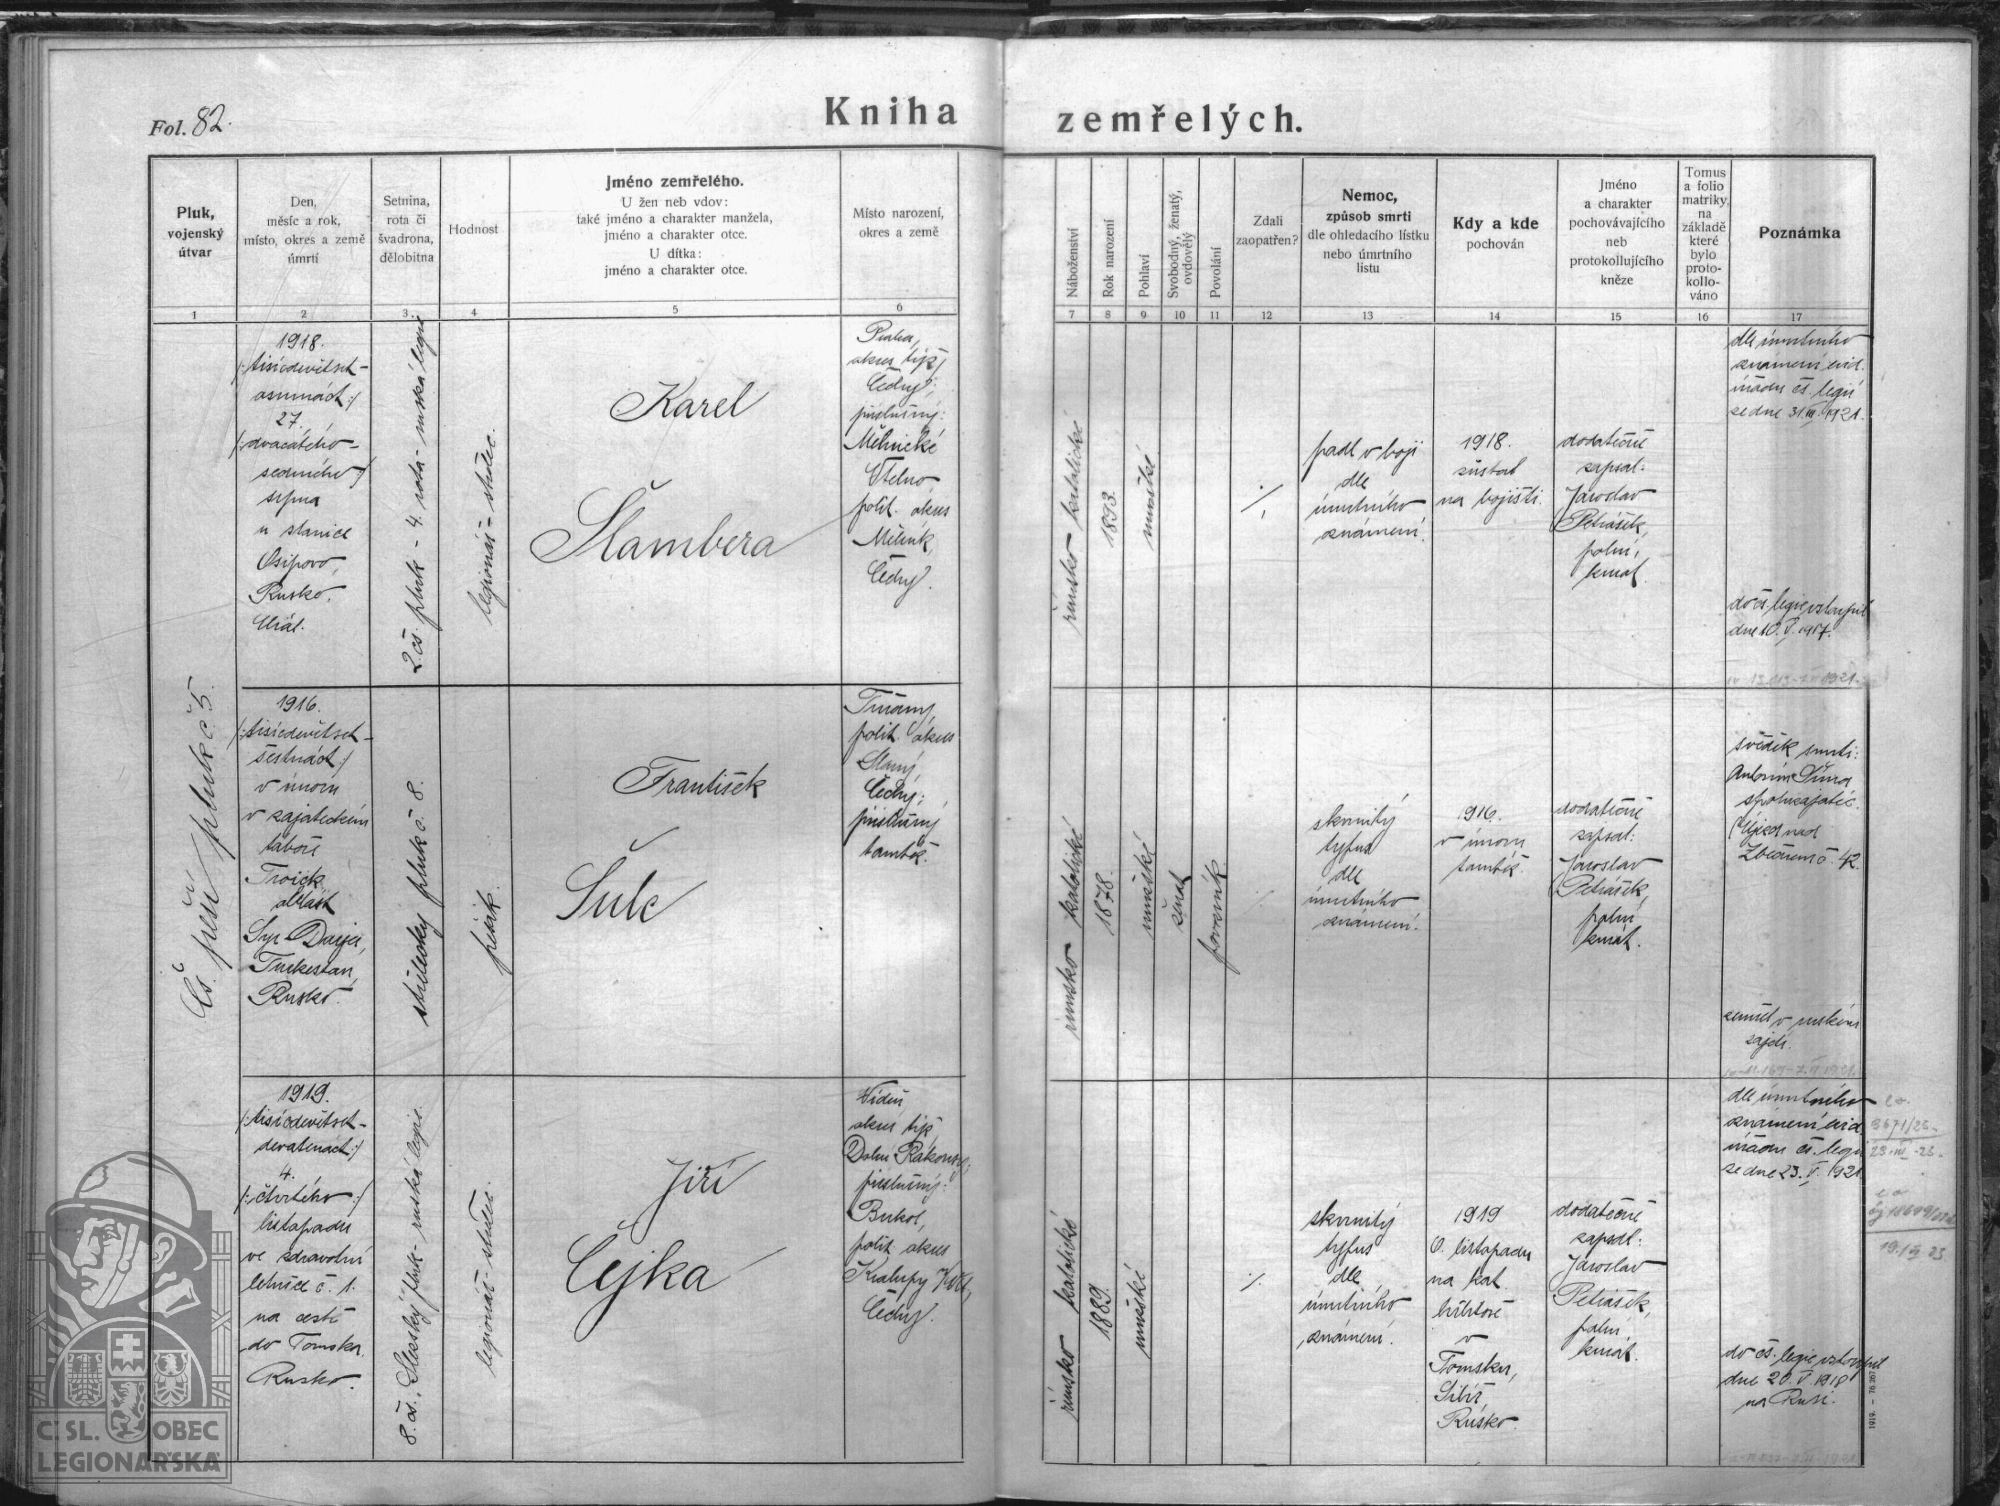 Fol. 82.
Kniha zemřelých.
Pluk,
vojenský
útvar
Den,
měsíc a rok,
místo, okres a země
úmrtí
Setnina,
rota či
švadrona,
dělobitna
Hodnost
Jméno zemřelého.
U žen neb vdov:
také jméno a charakter manžela,
jméno a charakter otce.
U dítka:
jméno a charakter otce.
Místo narození,
okres a země
Náboženství
Rok narození
Pohlaví
Svobodný, ženatý,
ovdovělý
Povolání
Zdali
zaopatřen?
Nemoc,
způsob smrti
dle ohledacího lístku
nebo úmrtního
listu
Kdy a kde
pochován
Jméno
a charakter
pochovávajícího
neb
protokollujícího
kněze
Tomus
a folio
matriky,
na
základě
které
bylo
proto-
kollo-
váno
Poznámka
1 2 3 4 5 6 7 8 9 10 11 12 13 14 15 16 17
Čs. pěší pluk č. 5.
1918.
/:tisícdevětset-
osmnáct:/
27.
/:dvacátého-
sedmého:/
srpna
u stanice
Osipovo,
Rusko,
Urál.
2 čs. pluk - 4. rota - ruská legie
legionář - střelec.
Karel
Šlambera
Praha,
okres týž,
Čechy;
příslušný:
Mělnické
Vtelno,
polit. okres
Mělník,
Čechy.
římsko katolické
1893.
mužské
%
padl v boji
dle
úmrtního
známení.
1918.
zůstal
na bojišti.
dodatečně
zapsal:
Jaroslav
Petrášek,
polní
kurát.
dle úmrtního
známení evid.
úřadu čs. legií
ze dne 31.III.1921.
do čs. legie vstoupil
dne 10.V.1917.
1916.
/:tisícdevětset-
šestnáct:/
v únoru
v zajateckém
táboře
Troick,
oblast
Syr-Darja,
Turkestan,
Rusko.
střelecký pluk č. 8.
pěšák.
František
Šulc
Třtěny,
polit. okres
Slaný,
Čechy;
příslušný
tamtéž.
římsko katolické
1878.
mužské
ženat
%
skvrnitý
tyfus
dle
úmrtního
známení.
1916.
v únoru
tamtéž.
dodatečně
zapsal:
Jaroslav
Petrášek,
polní
kurát.
svědek smrti:
Antonín Šíma
spoluzajatec.
Újezd nad
Zbečnem č. 42.
zemřel v ruském
zajetí.
1919.
/:tisícdevětset-
devatenáct:/
4.
/:čtvrtého:/
listopadu
ve zdravotní
letučce č. 1.
na cestě
do Tomska.
Rusko.
8. čs. Slezský pluk - ruská legie.
legionář - střelec.
Jiří
Čejka
Vídeň,
okres týž,
Dolní Rakousy;
příslušný:
Bukol,
polit. okres
Kralupy n/Vlt.,
Čechy.
římsko katolické
1889.
mužské
%
skvrnitý
tyfus
dle
úmrtního
známení.
1919
6. listopadu
na kat.
hřbitově
v
Tomsku,
Sibiř,
Rusko.
dodatečně
zapsal:
Jaroslav
Petrášek,
polní
kurát.
dle úmrtního
známení evid.
úřadu čs. legií
ze dne 23.V.1921.
do čs. legie vstoupil
dne 20.V.1918
na Rusi.
Č. SL. OBEC
LEGIONÁŘSKÁ